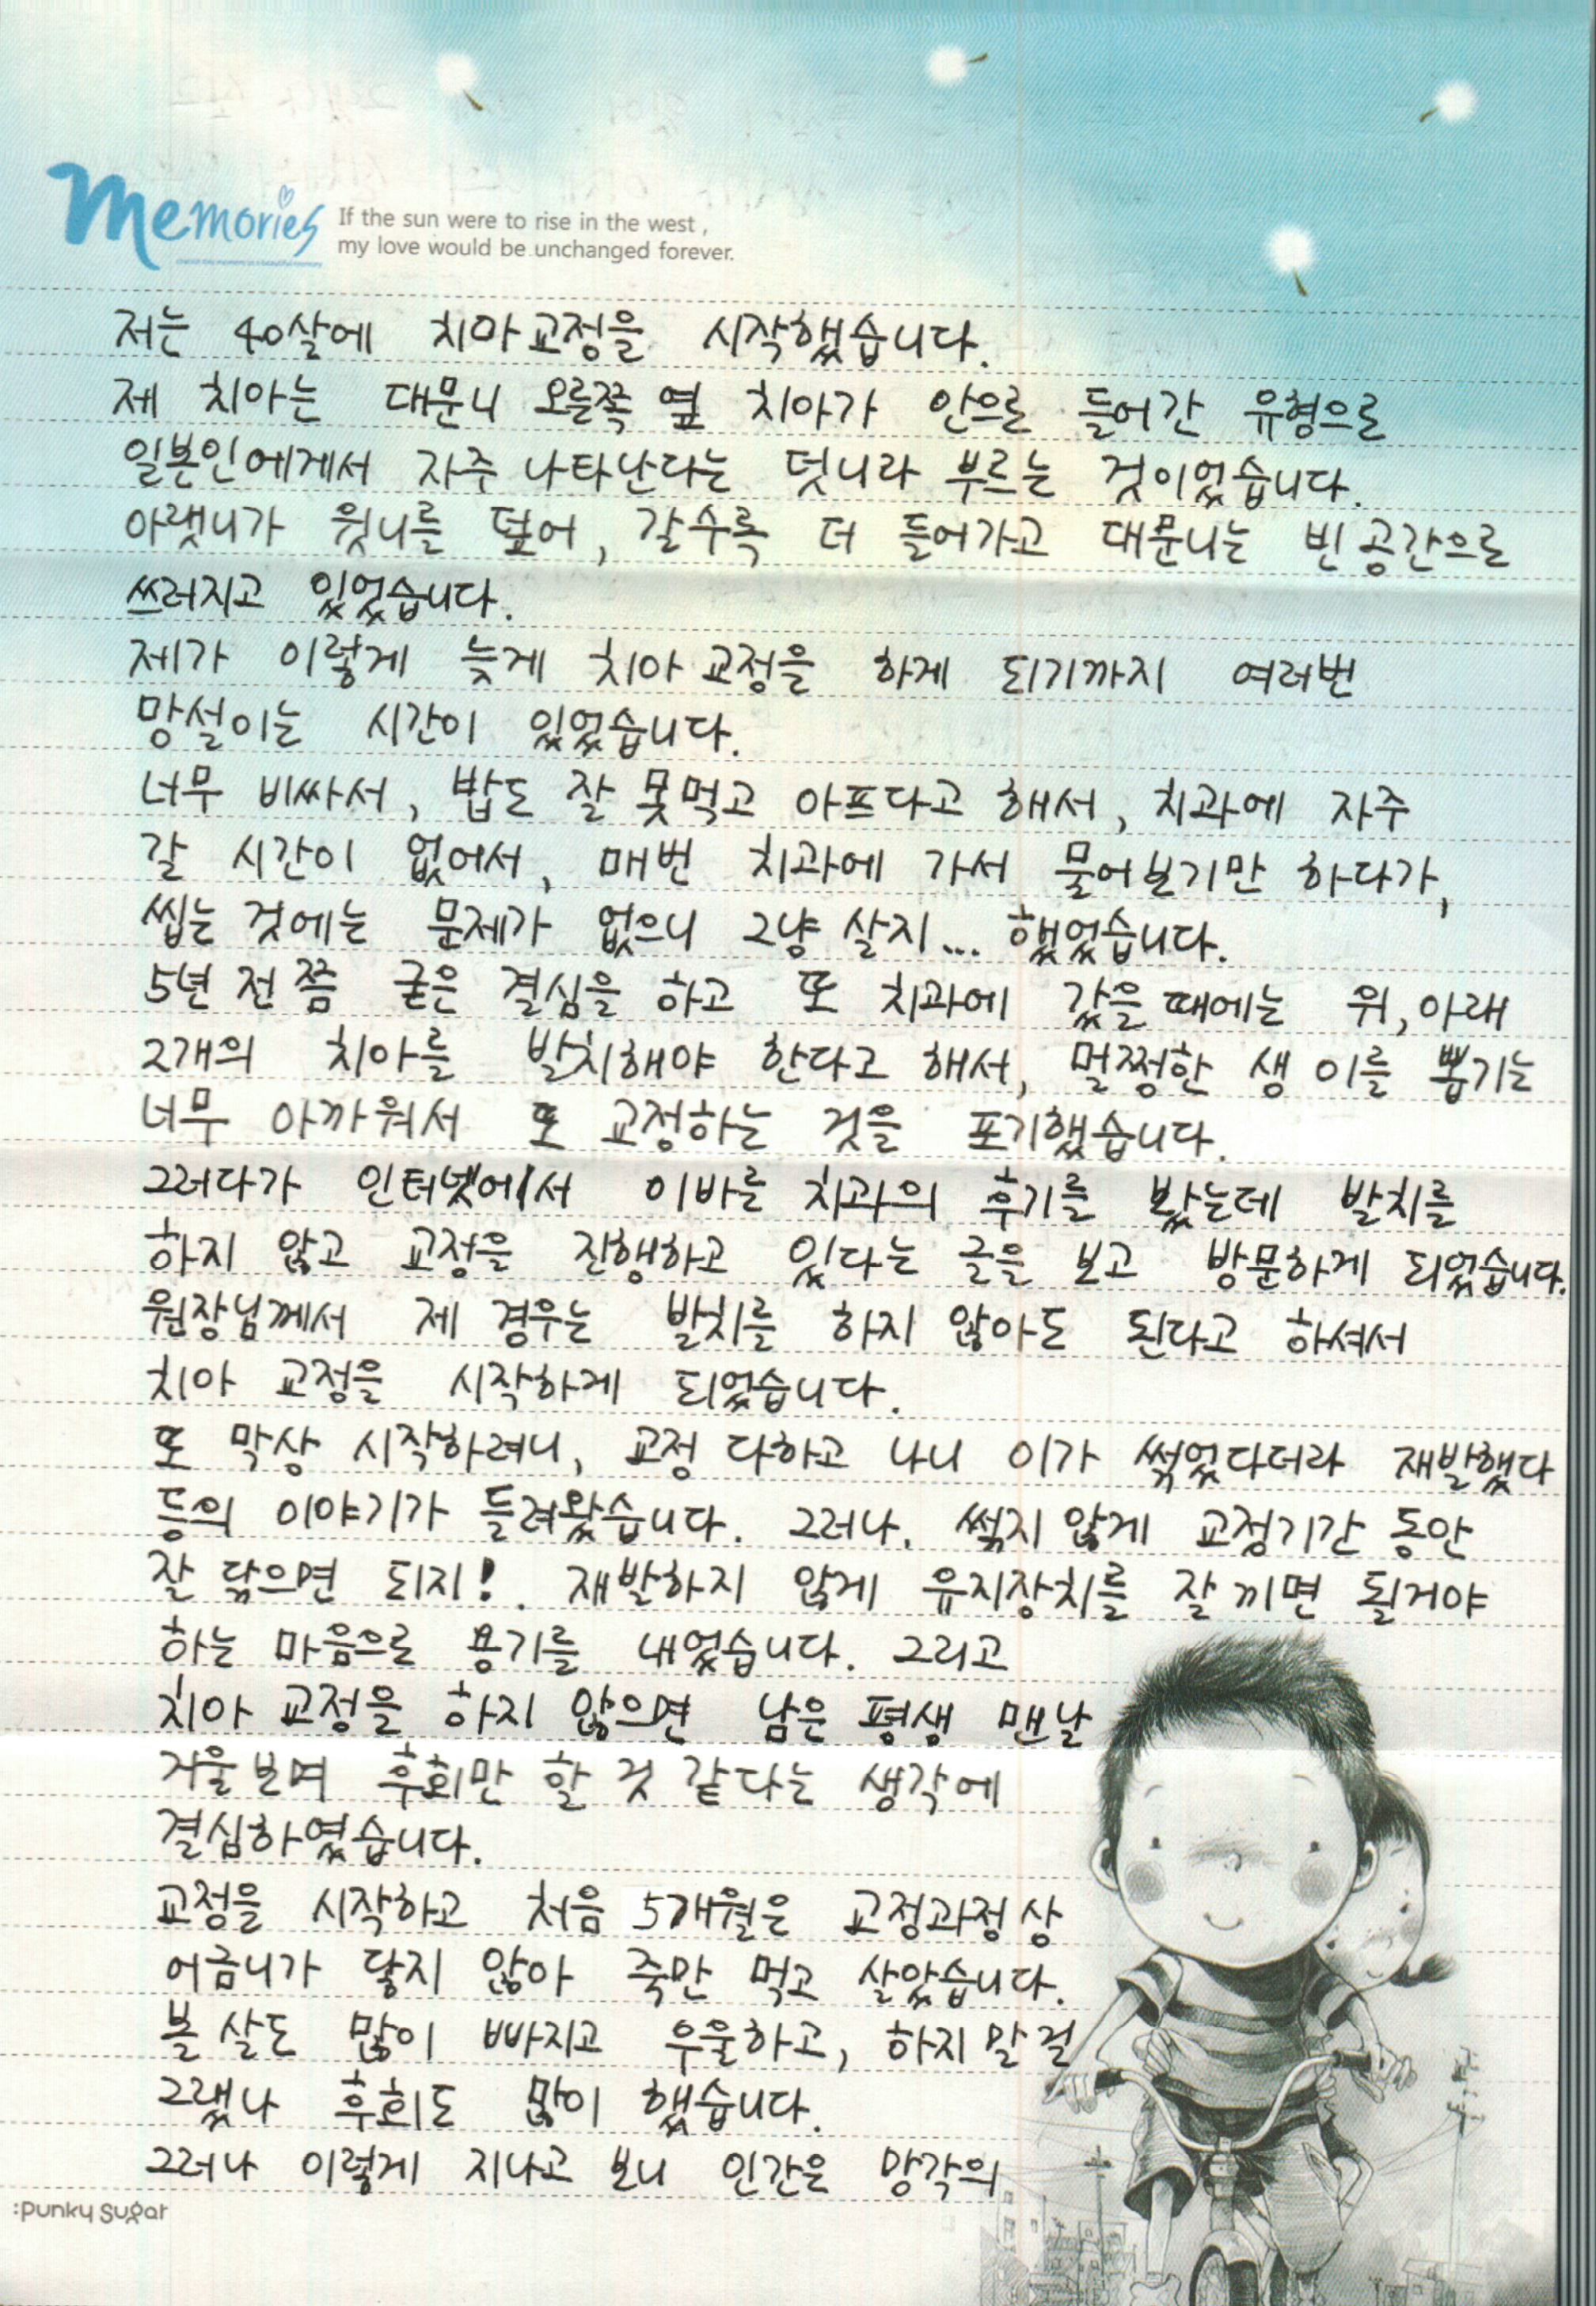 Memories
If the sun were to rise in the west,
my love would be unchanged forever.
저는 40살에 치아교정을 시작했습니다.
제 치아는 대문니 오른쪽 옆 치아가 안으로 들어간 유형으로
일본인에게서 자주 나타난다는 덧니라 부르는 것이었습니다.
아랫니가 윗니를 덮어, 갈수록 더 들어가고 대문니는 빈 공간으로
쓰러지고 있었습니다.
제가 이렇게 늦게 치아 교정을 하게 되기까지 여러번
망설이는 시간이 있었습니다.
너무 비싸서, 밥도 잘 못먹고 아프다고 해서, 치과에 자주
갈 시간이 없어서, 매번 치과에 가서 물어보기만 하다가,
씹는 것에는 문제가 없으니 그냥 살지... 했었습니다.
5년 전 쯤 굳은 결심을 하고 또 치과에 갔을 때에는 위, 아래
2개의 치아를 발치해야 한다고 해서, 멀쩡한 생 이를 뽑기는
너무 아까워서 또 교정하는 것을 포기했습니다.
그러다가 인터넷에서 이바른 치과의 후기를 봤는데 발치를
하지 않고 교정을 진행하고 있다는 글을 보고 방문하게 되었습니다.
원장님께서 제 경우는 발치를 하지 않아도 된다고 하셔서
치아 교정을 시작하게 되었습니다.
또 막상 시작하려니, 교정 다하고 나니 이가 썩었다더라 재발했다
등의 이야기가 들려왔습니다. 그러나, 썩지 않게 교정기간 동안
잘 닦으면 되지!. 재발하지 않게 유지장치를 잘 끼면 될거야
하는 마음으로 용기를 내었습니다. 그리고
치아 교정을 하지 않으면 남은 평생 맨날
거울 보며 후회만 할 것 같다는 생각에
결심하였습니다.
교정을 시작하고 처음 5개월은 교정과정 상
어금니가 닿지 않아 죽만 먹고 살았습니다.
볼 살도 많이 빠지고 우울하고, 하지 말 걸
그랬나 후회도 많이 했습니다.
그러나 이렇게 지나고 보니 인간은 망각의
:punky sugar